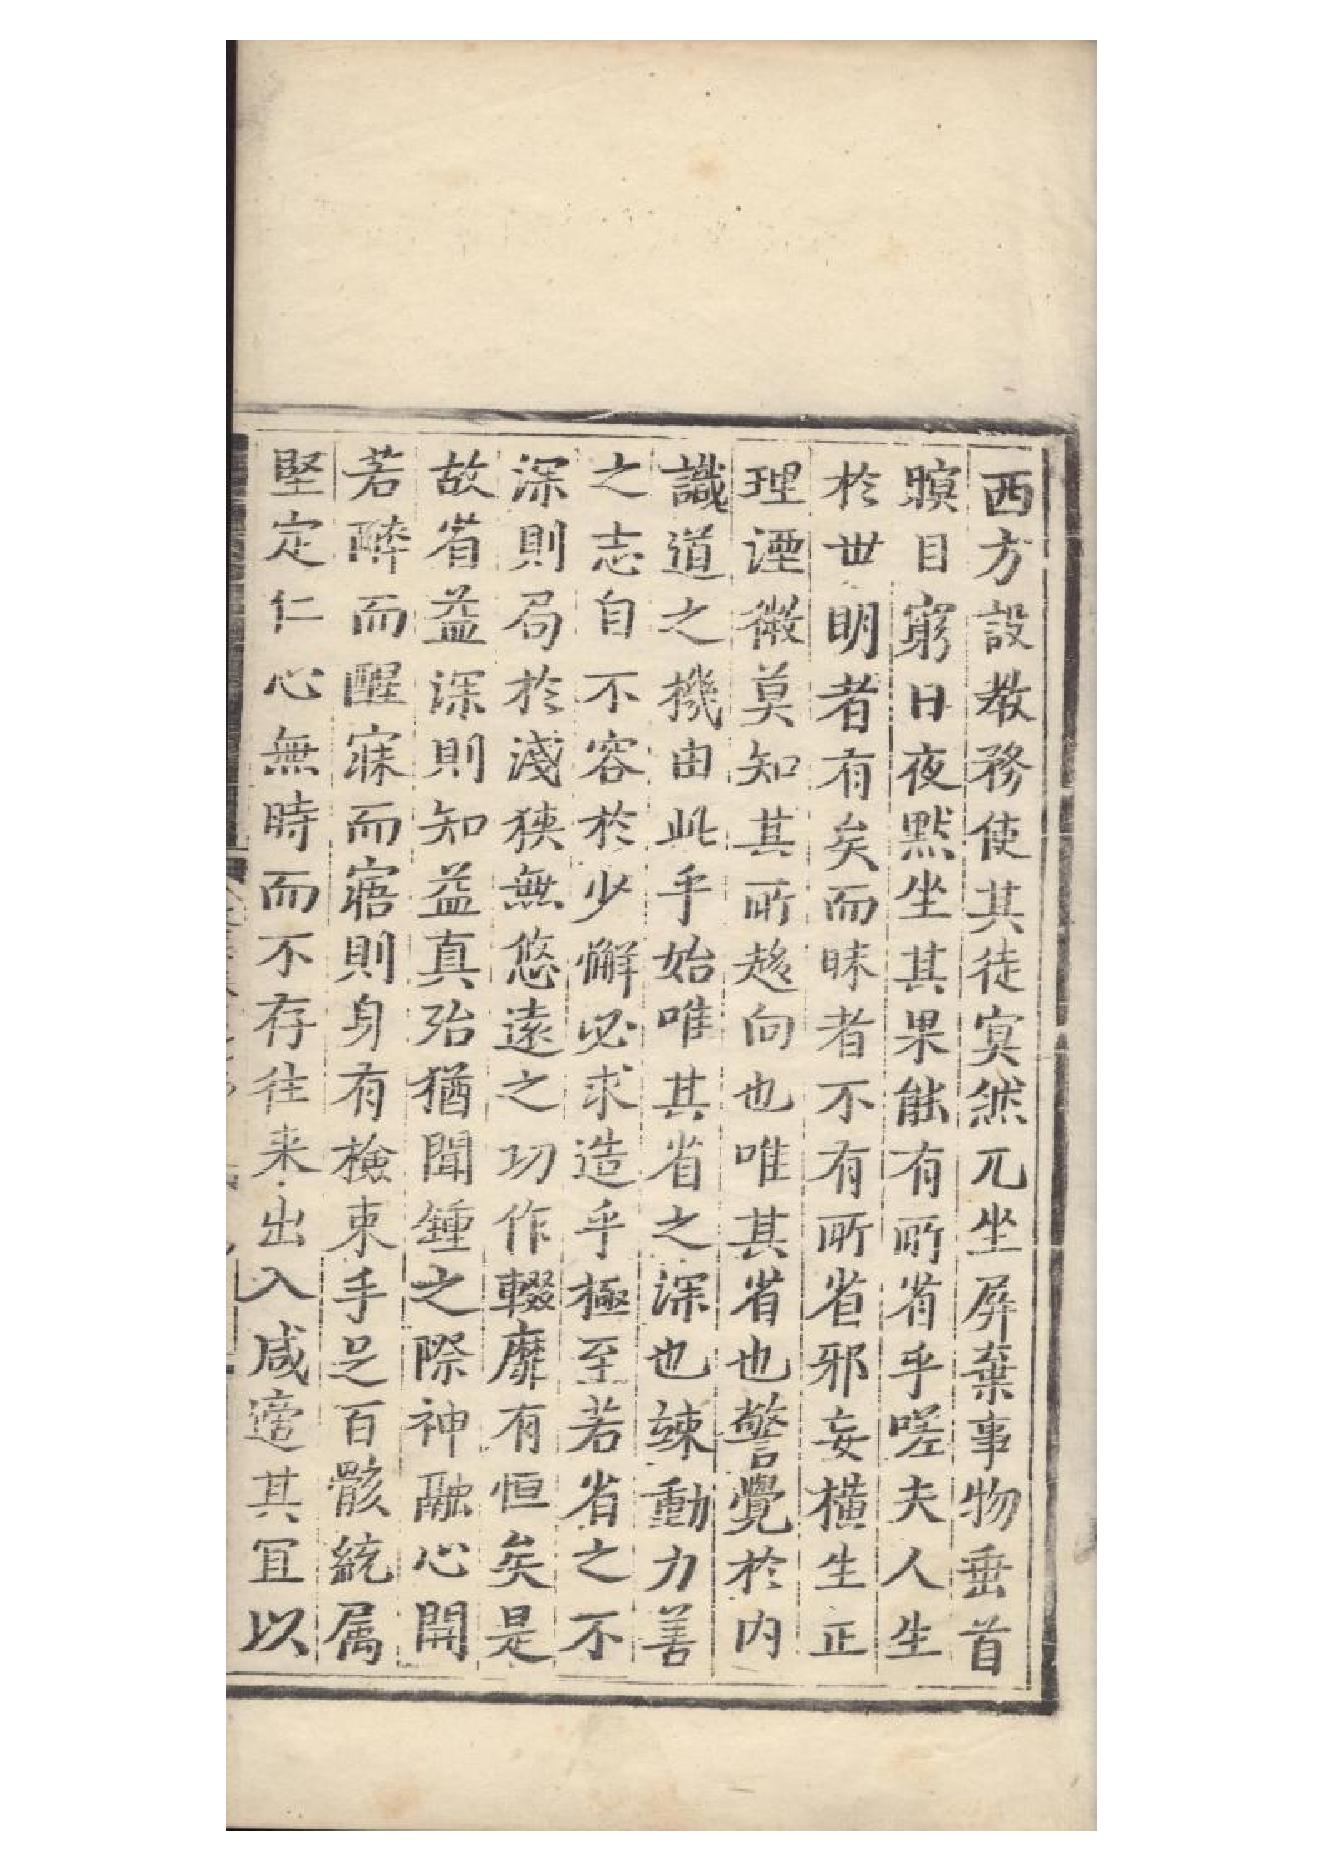 西方設教務使其徒冥然兀坐屏棄事物垂首
瞑目窮日夜默坐其果能有所省乎嗟夫人生
於世明者有矣而昧者不有所省邪妄橫生正
理湮微莫知其所趍向也唯其省也警覺於内
識道之機由此乎始唯其省之深也竦動力善
之志自不容於少懈必求造乎極至若省之不
深則局於淺狹無悠遠之功作輟靡有恒矣是
故省益深則知益真殆猶聞鍾之際神融心開
若醉而醒寐而寤則身有檢束手足百骸統属
堅定仁心無時而不存往来出入咸適其冝以